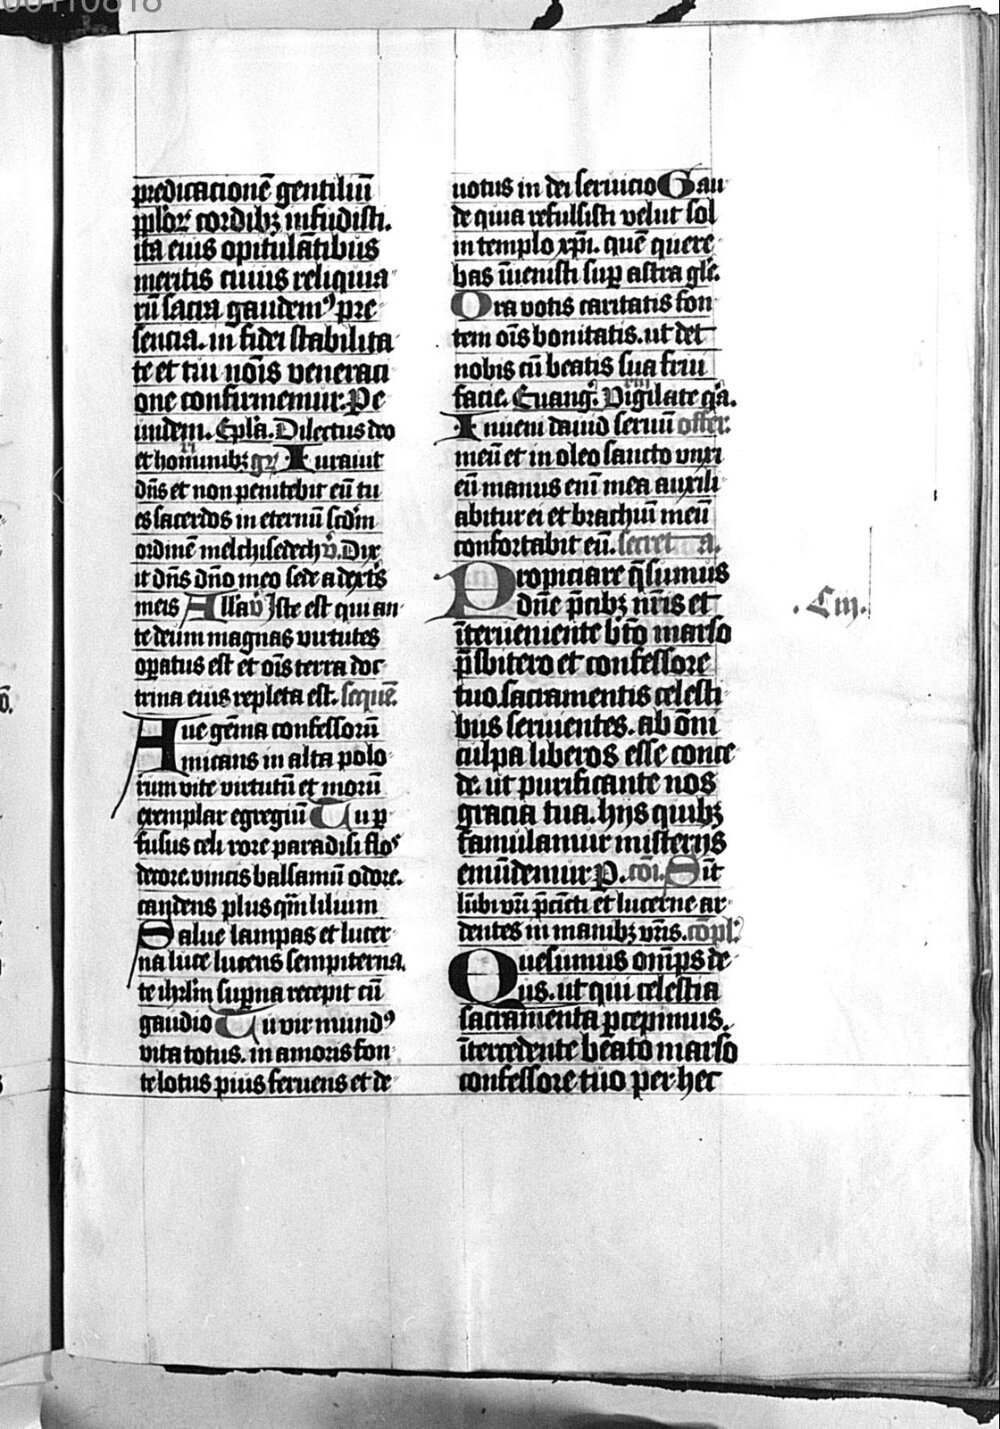 predicacionē gentiliū
pplorꝝ cordibꝫ infudisti.
ita eius opitulātibus
meritis cuius reliquia
rū sacra gaudemꝰ pre
sencia. in fidei stabilita
te et tui nōis veneraci
one confirmemur. Pe
undem. Epl̄a. Dilectus deo
et hominibꝫ gr̄ Iurauit
dn̄s et non penitebit eū tu
es sacerdos in eternū scd̄m
ordinē melchisedech v̄. Dix
it dn̄s dn̄o meo sede a dextꝭs
meis All'a v̄ Iste est qui an
te deum magnas virtutes
oꝑatus est et oīs terra doc
trina eius repleta est. sequē.
Aue gēma confessorū
micans in alta polo
rum vite virtutū et morū
exemplar egregiū Tu ꝑ
fusus celi rore paradisi flos
decore. vincis balsamū odore.
candens plus qm̄ lilium
Salue lampas et lucer
na luce lucens sempiterna.
te ihrl̄m suꝑna recepit cū
gaudio Tu vir mundꝰ
vita totus. in amoris fon
te lotus pius feruens et de
uotus in dei seruicio Gau
de quia refulsisti velut sol
in templo xp̄i. quē quere
bas īuenisti suꝑ astra gl'e.
Ora votis caritatis fon
tem oīs bonitatis. ut det
nobis cū beatis sua frui
facie. Euang'. Vigilate q'a.
Inueni dauid seruū offer.
meū et in oleo sancto vnxi
eū manus enī mea auxili
abitur ei et brachiū meū
confortabit eū. secreta.
Propiciare q̄sumus
dn̄e p̄cibꝫ nr̄is et
īterueniente bt̄o marso
p̄sbitero et confessore
tuo. sacramentis celesti
bus seruientes. ab om̄i
culpa liberos esse conce
de. ut purificante nos
gracia tua. hijs quibꝫ
famulamur misterijs
emūdemur P. cōi. Sīt
lūbi vr̄i p̄cīcti et lucerne ar
dentes in manibꝫ vr̄is. cōpl'.
Quesumus om̄ps de
us. ut qui celestia
sacramenta ꝑcepimus.
ītercedente beato marso
confessore tuo per hec